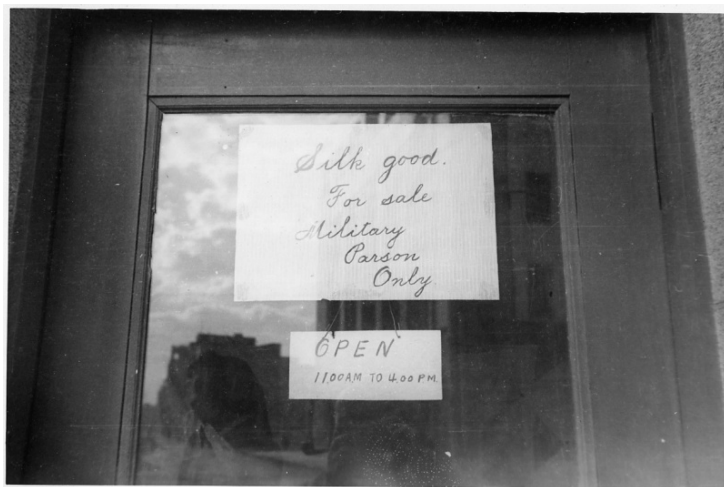 Silk good.
For sale
Military
Parson
Only.
OPEN
11 00 AM TO 4.00 P.M.